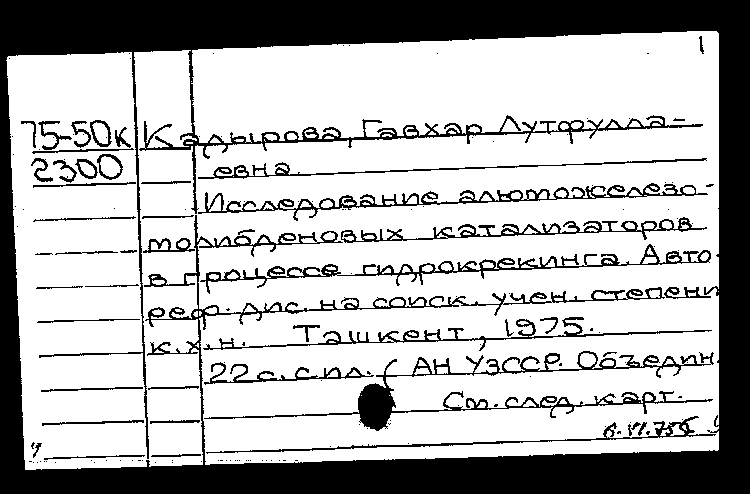 1
75-50к Кадырова, Гавхар Лутфулла-
2300 евна.
Исследование алюможелезо-
молибденовых катализаторов
в процессе гидрокрекинга. Авто-
реф. дис. на соиск. учен. степени
к.х.н. Ташкент, 1975.
22 с. с ил. (АН УзССР. Объедин.
См. след. карт.